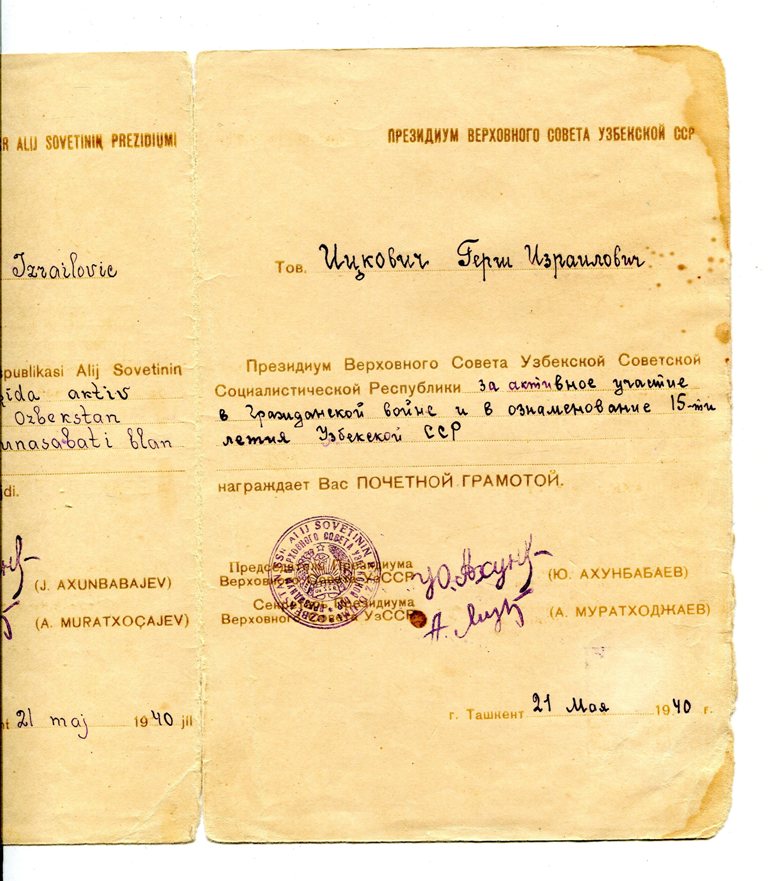 R ALIJ SOVETININ PREZIDIUMI
Izrailovic
spublikasi Alij Sovetinin
aktiv
Ozbekstan
unasabati blan
di.
(J. AXUNBABAJEV)
(A. MURATXOÇAJEV)
21 maj 1940 jil
ПРЕЗИДИУМ ВЕРХОВНОГО СОВЕТА УЗБЕКСКОЙ ССР
Тов. Ицкович Герш Израилович
Президиум Верховного Совета Узбекской Советской
Социалистической Республики за активное участие
в Гражданской войне и в ознаменование 15-ти
летия Узбекской ССР
награждает Вас ПОЧЕТНОЙ ГРАМОТОЙ.
Председатель Президиума
Верховного Совета УзССР
Ю. Ахунб (Ю. АХУНБАБАЕВ)
Секретарь Президиума
Верховного Совета УзССР
(А. МУРАТХОДЖАЕВ)
г. Ташкент 21 Мая 1940 г.